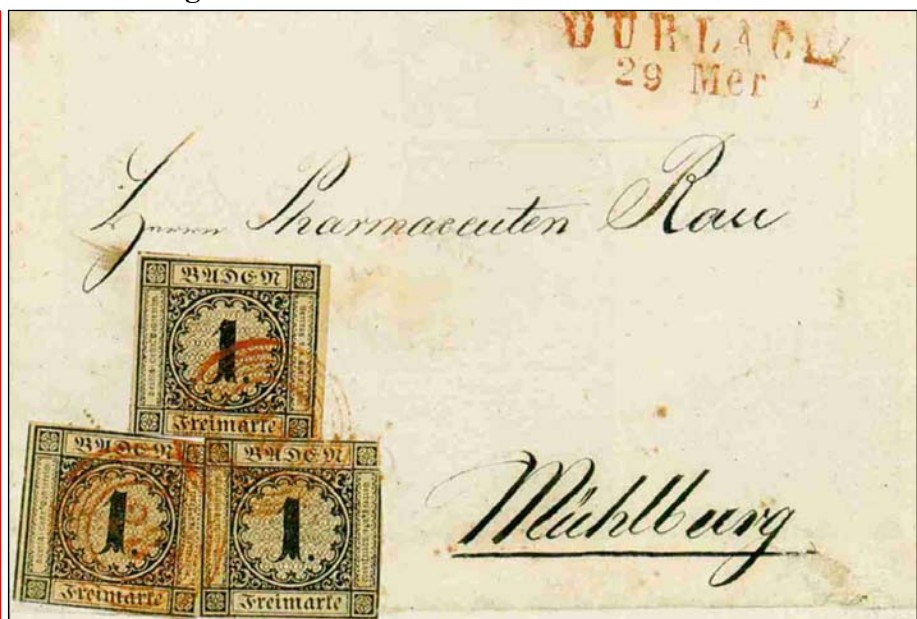 DURLACH
29 Mer
Herrn Pharmaceuten Rau
BADEN
1.
Freimarke
BADEN
1.
Freimarke
BADEN
1.
Freimarke
Mühlburg